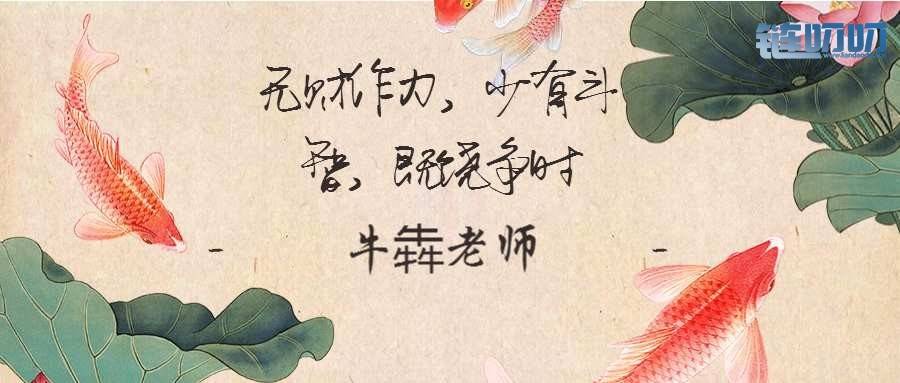 链叨叨
无财作力，少有斗
智，既饶争时
- 牛犇老师 -